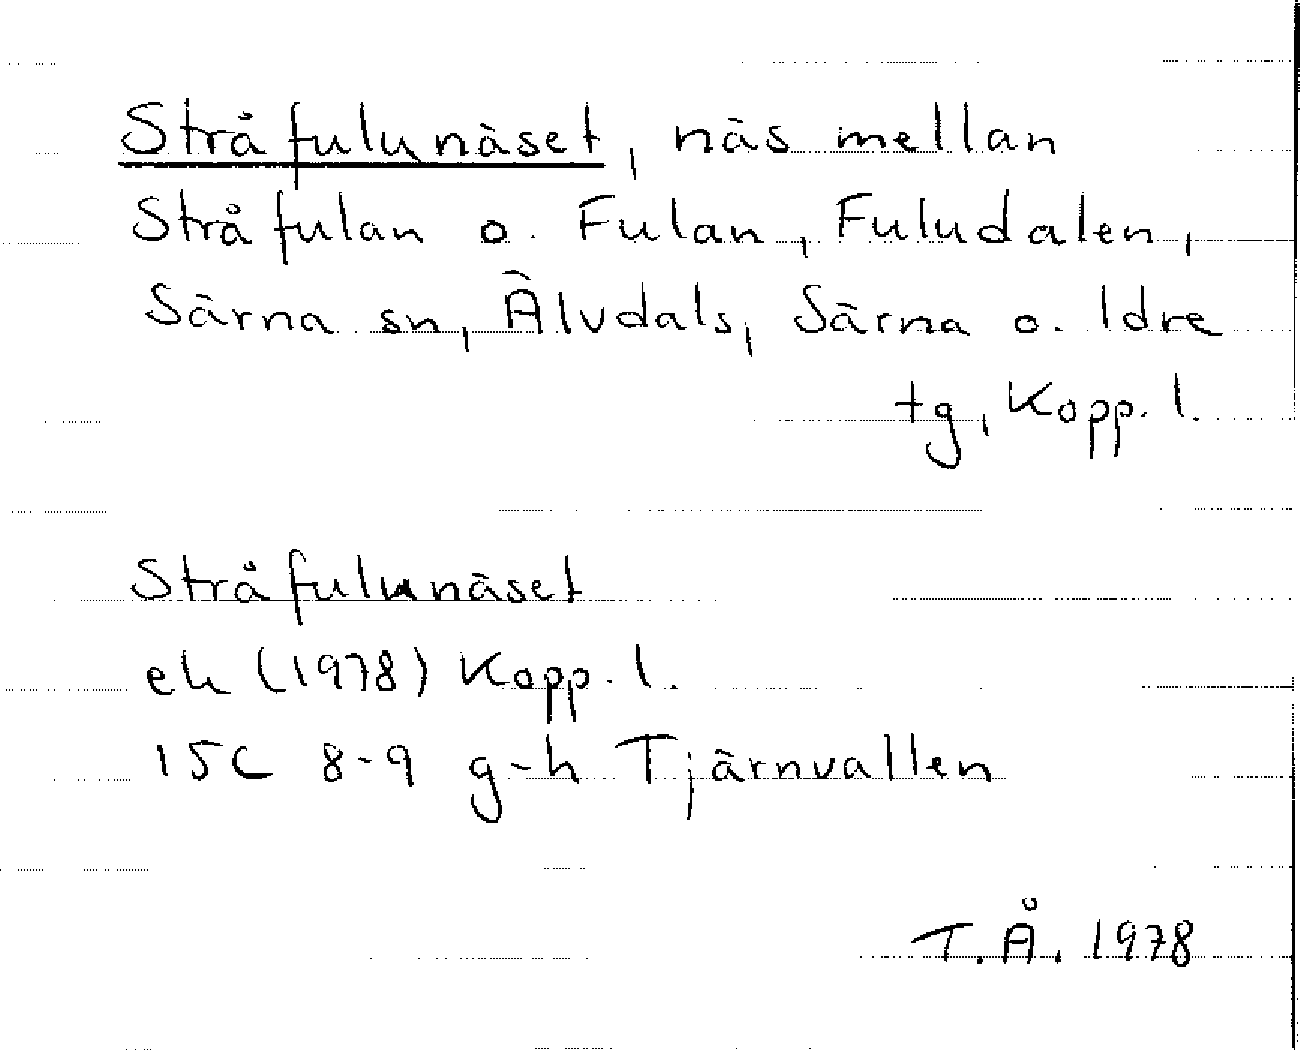 Stråfulunäset, näs mellan
Stråfulan o. Fulan, Fuludalen,
Särna sn, Älvdals, Särna o. Idre
tg, Kopp. l.
Stråfulunäset
ek (1978) Kopp. l.
15C 8-9 g-h Tjärnvallen
T.Å. 1978